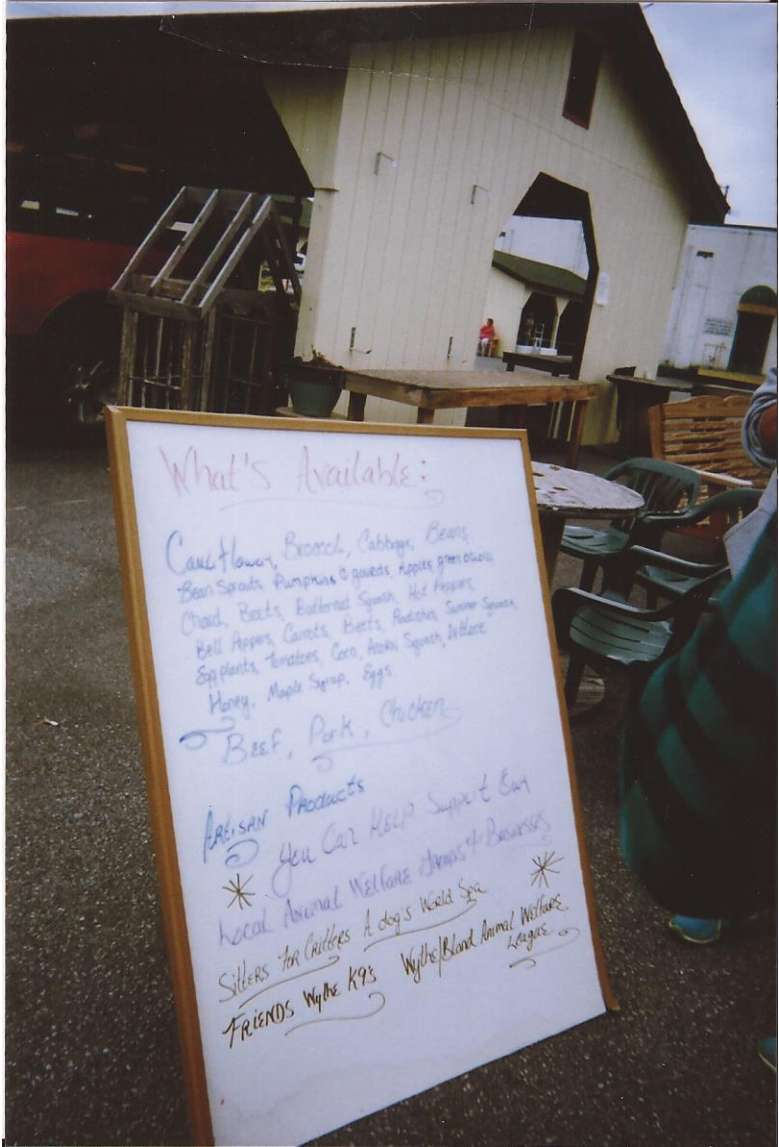 What's Available:
Cauliflower, Broccoli, Cabbage, Beans,
Bean Sprouts Pumpkins & gourds, Apples, green onions
Chard, Beets, Butternut Squash, Hot Peppers,
Bell Peppers, Carrots, Beets, Radishes, Summer Squash,
Eggplants, Tomatoes, Corn, Acorn Squash, Lettuce
Honey, Maple Syrup, Eggs
Beef, Pork, Chicken
Artisan Products
You Can Help Support Our
Local Animal Welfare Businesses
Sitters For Critters A dog's World Spa
FRIENDS Wythe K9's Wythe/Bland Animal Welfare
League